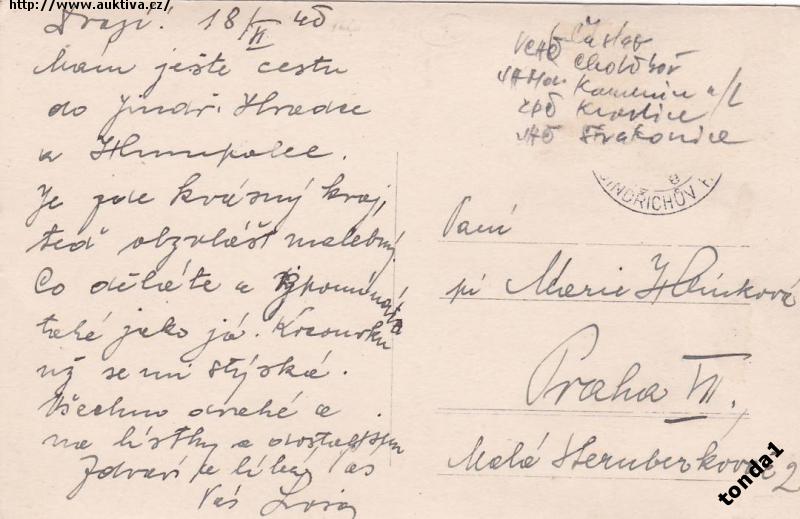 http://www.auktiva.cz/
Drazí! 18/VI 40
Mám ještě cestu
do Jindř. Hradce
a Humpolce.
Je zde krásný kraj,
teď obzvlášť malebný.
Co děláte a vzpomínáte
také jako já.
už se mi stýská.
Všechno drahé a
na lístky a
Zdraví a líbá Vás
Váš
Čáslav
Chotěboř
Kamenice n/L
Kraslice
Strakonice
JINDŘICHŮV H.
Paní
pí Marie Hlinková
Praha III.,
Malá Šternberková 2
tonda1